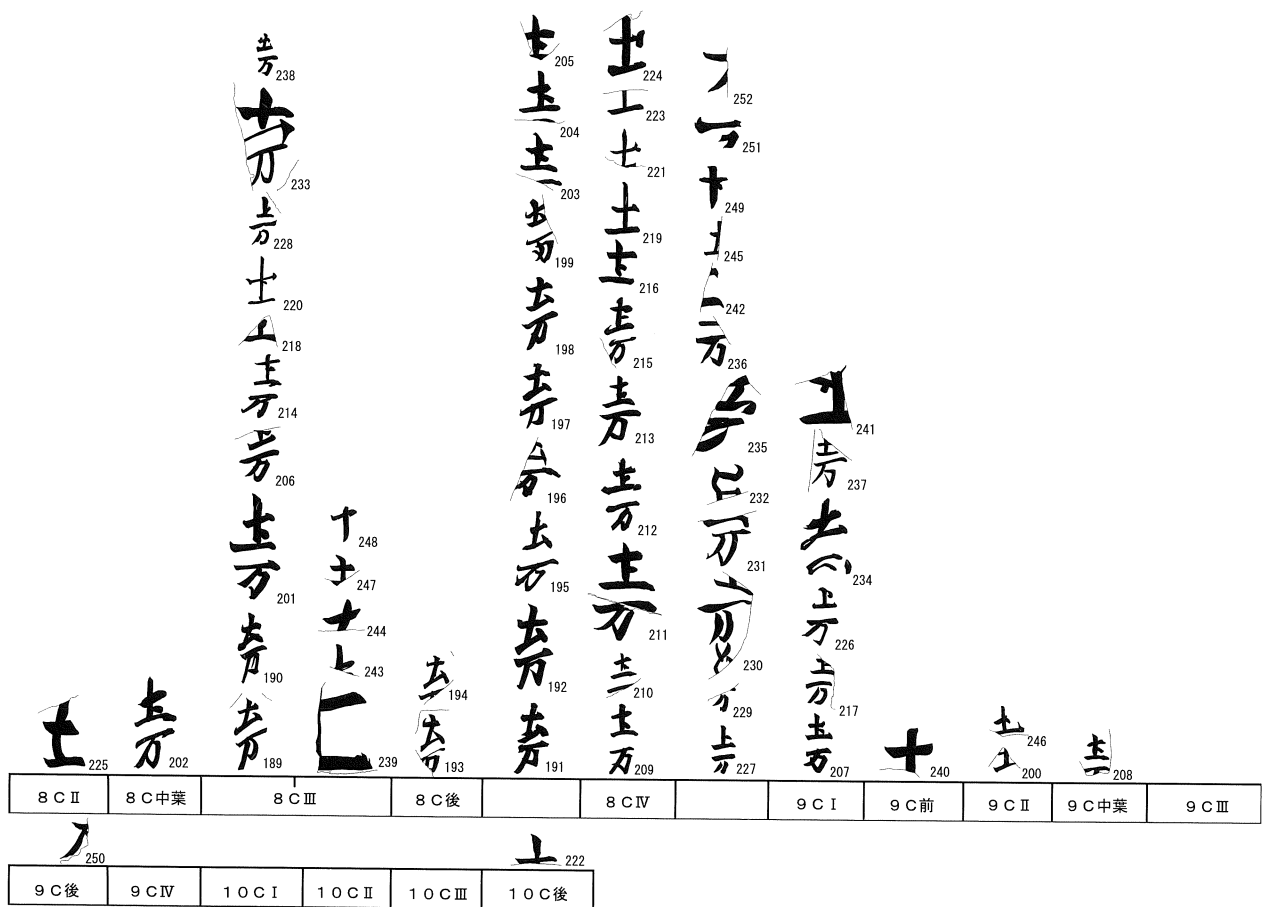 土
225
土万
202
土万
238
土万
233
土万
228
土
220
218
土万
214
土万
206
土万
201
土万
190
土万
189
248
土
247
244
243
239
194
土万
193
土
205
204
203
199
土万
198
土万
197
196
195
土万
192
土万
191
土
224
223
221
土
219
土
216
土万
215
土万
213
土万
212
土万
211
210
土万
209
252
251
249
245
242
万
236
235
232
万
231
230
229
土万
227
241
土万
237
234
土万
226
土万
217
土万
207
240
土
246
200
208
8CⅡ 8C中葉 8CⅢ 8C後 8CⅣ 9CⅠ 9C前 9CⅡ 9C中葉 9CⅢ
250
222
9C後 9CⅣ 10CⅠ 10CⅡ 10CⅢ 10C後